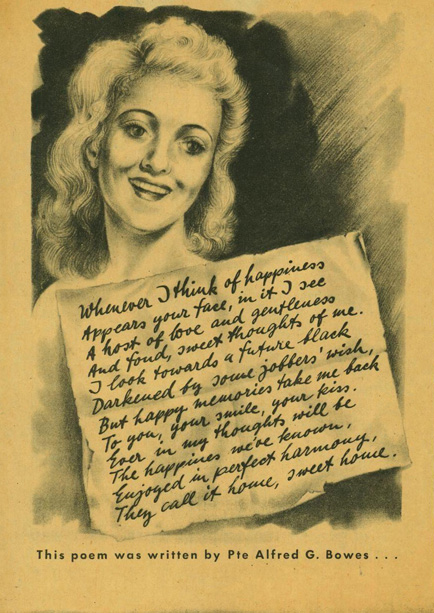 Whenever I think of happiness
Appears your face, in it I see
A host of love and gentleness
And fond, sweet thoughts of me.
I look towards a future black
Darkened by some jobbers' wish,
But happy memories take me back
To you, your smile, your kiss.
Ever in my thoughts will be
The happines we've known,
Enjoyed in perfect harmony,
They call it home, sweet home.
This poem was written by Pte Alfred G. Bowes . . .